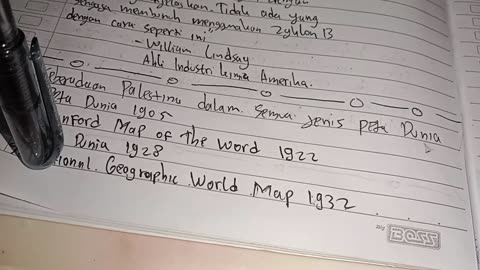 Tidak ada yang
sengaja membunuh menggunakan Zyklon B
dengan cara seperti ini,
- William Lindsay
Ahli Industri kimia Amerika.
Palestina dalam semua jenis peta Dunia
Peta Dunia 1905
Map of The Word 1922
Dunia 1928
Geographic World Map 1932
by BOSS